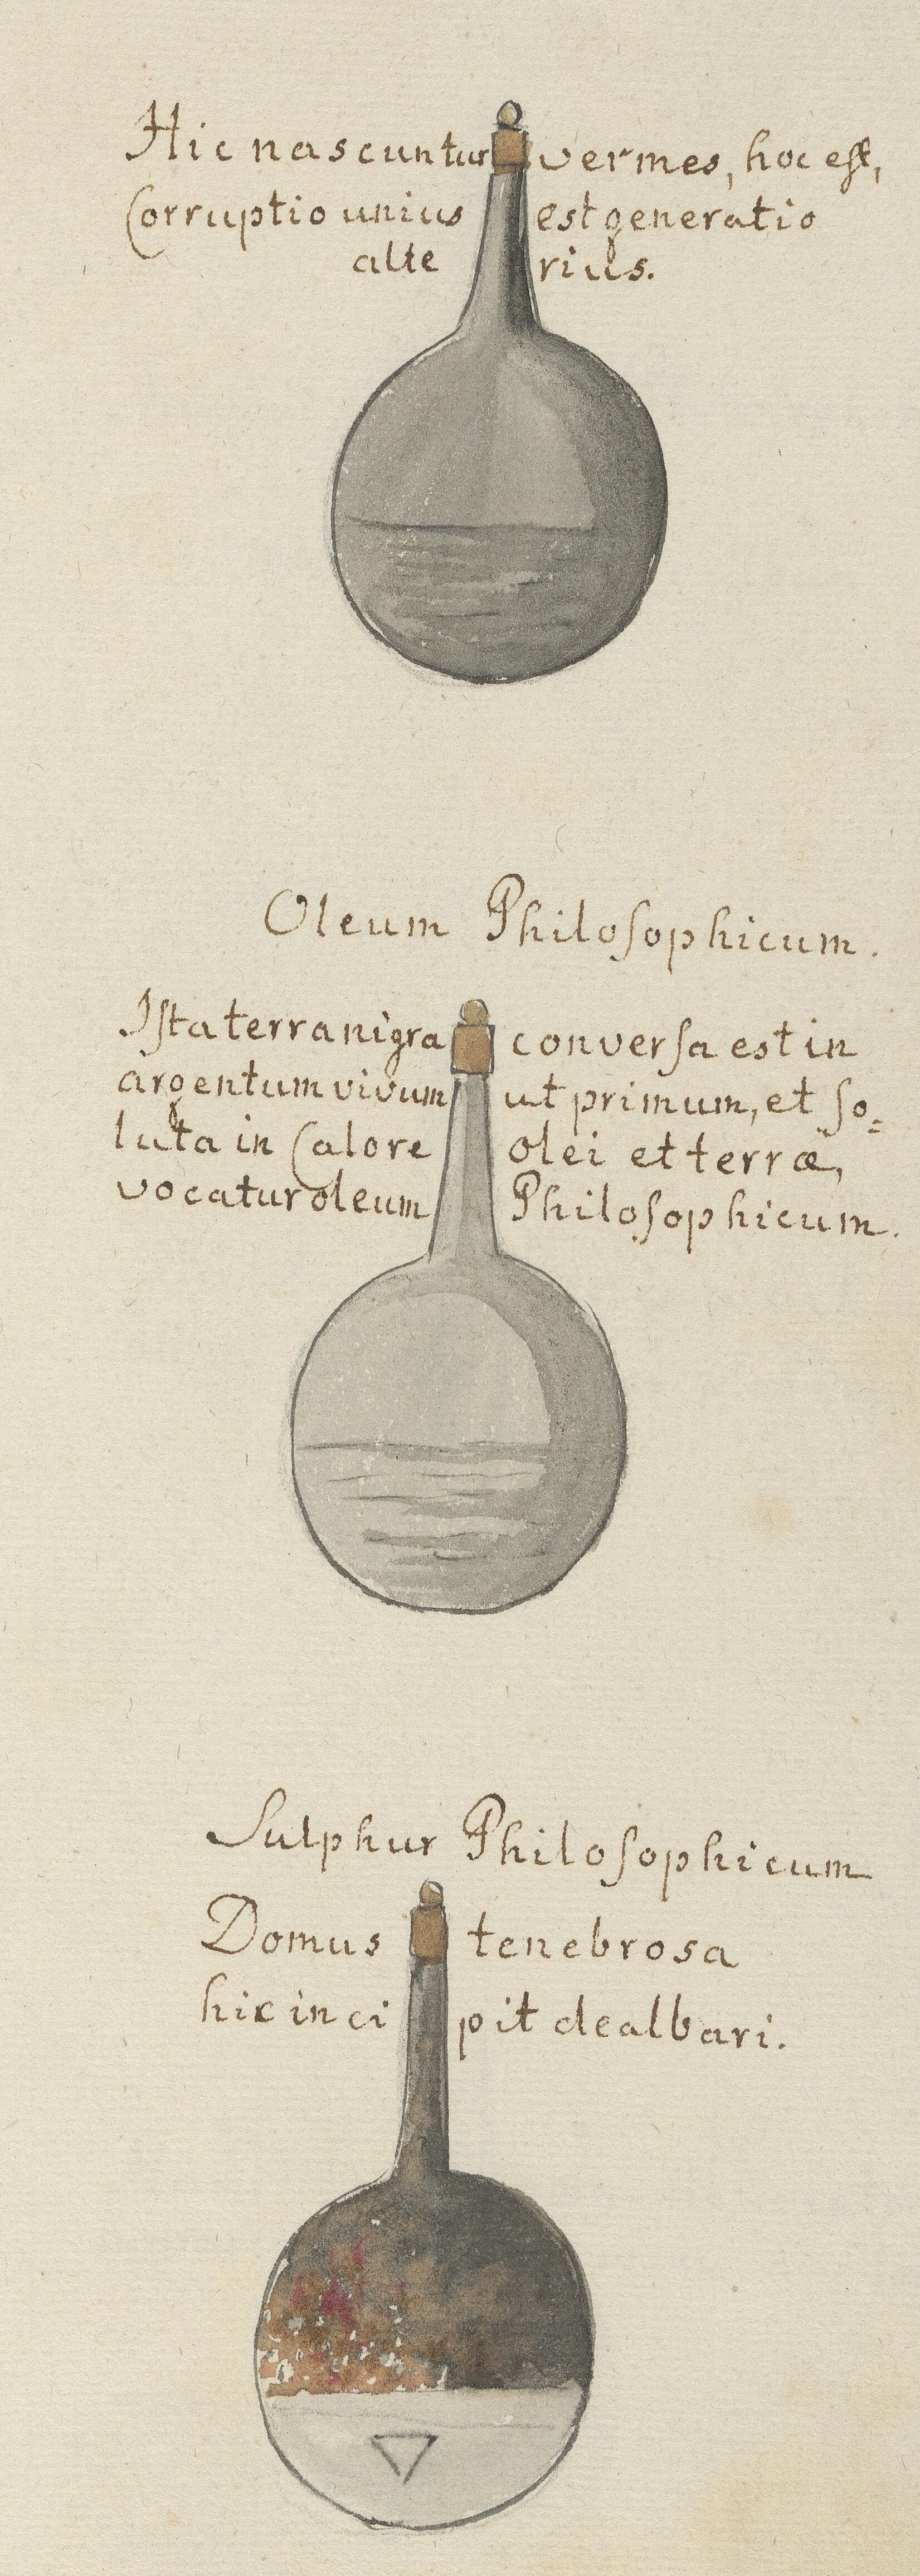 Hic nascuntur vermes, hoc est,
Corruptio unius est generatio
alte rius.
Oleum Philosophicum.
Ista terra nigra conversa est in
argentum vivum ut primum, et so=
luta in Calore olei et terræ,
vocatur oleum Philosophicum.
Sulphur Philosophicum
Domus tenebrosa
hic inci pit dealbari.